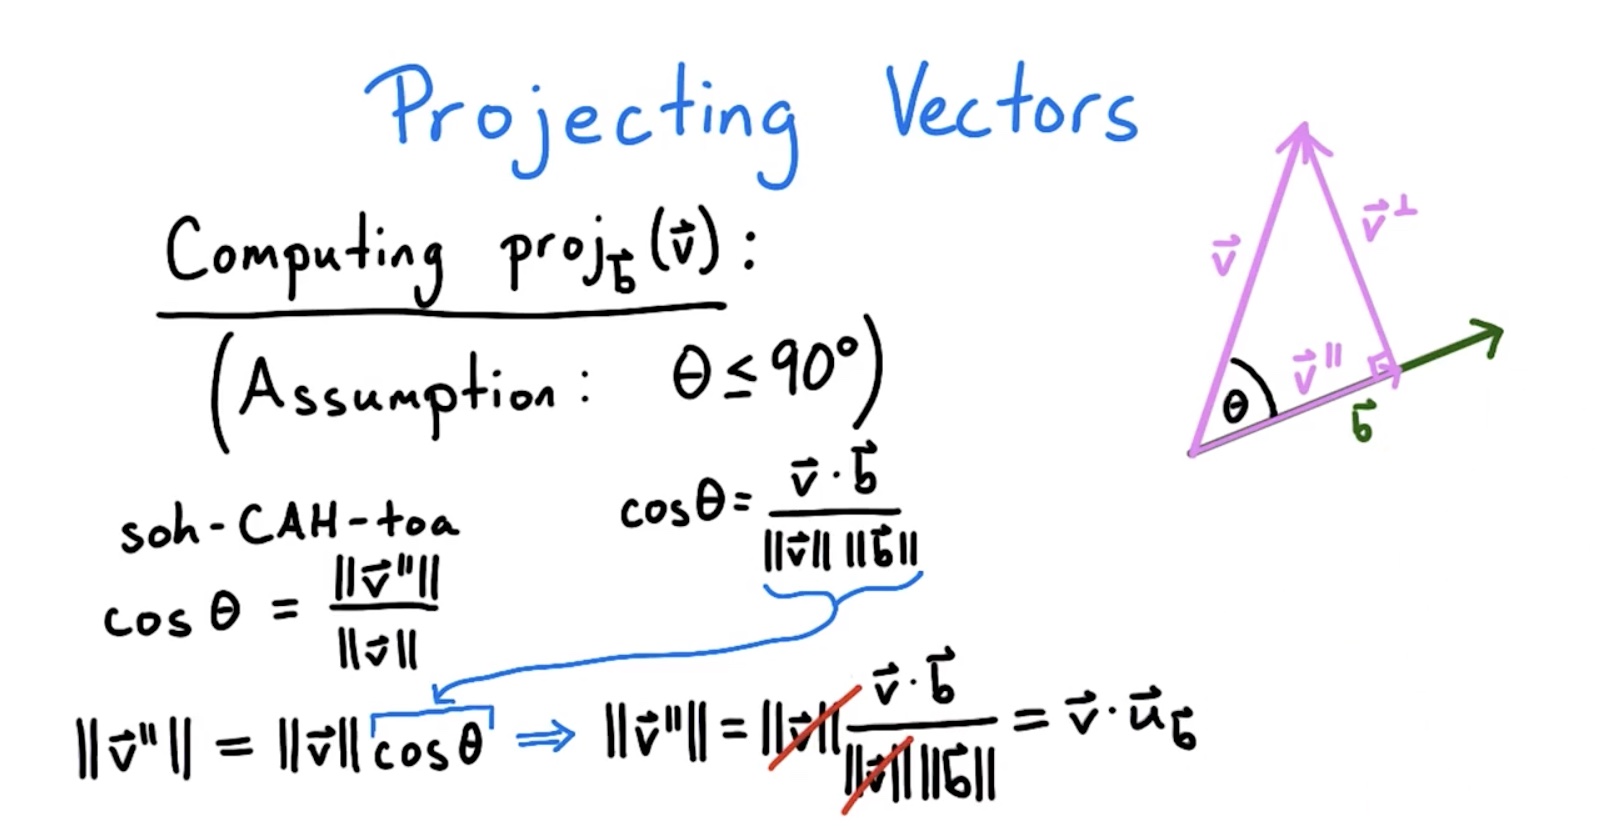 Projecting Vectors
Computing proj_b⃗ (v⃗) :
(Assumption : θ ≤ 90°)
soh-CAH-toa
cos θ = ‖v⃗^∥‖ / ‖v⃗‖
cos θ = v⃗ · b⃗ / ‖v⃗‖ ‖b⃗‖
‖v⃗^∥‖ = ‖v⃗‖ cos θ ⇒ ‖v⃗^∥‖ = ‖v⃗‖ v⃗ · b⃗ / ‖v⃗‖ ‖b⃗‖ = v⃗ · u⃗_b⃗
v⃗
v⃗^⊥
v⃗^∥
θ
b⃗